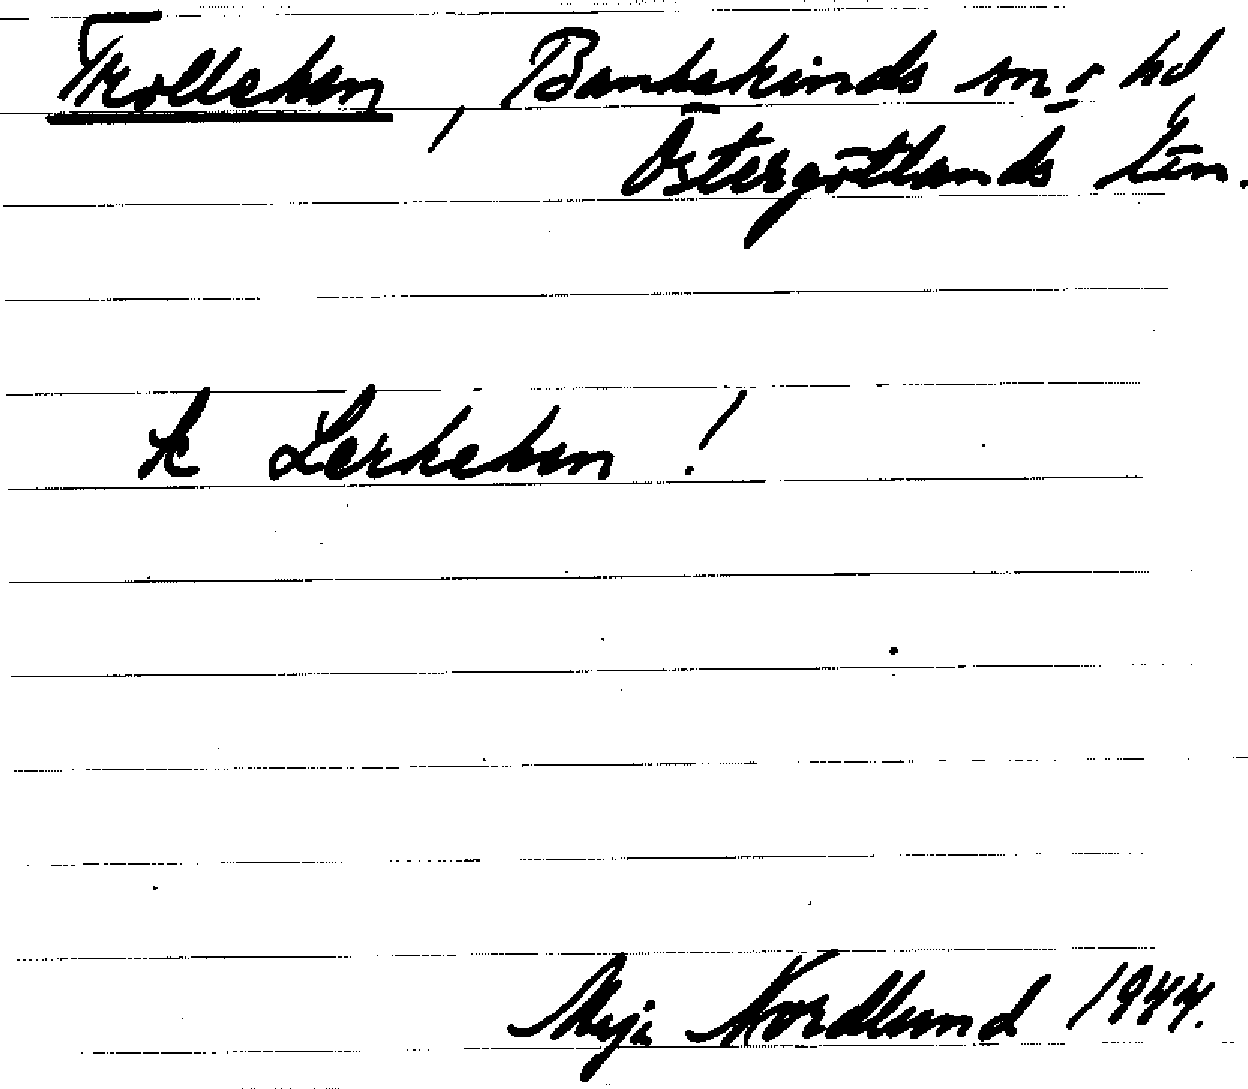 Trolleken, Bankekinds sn o hd
Östergötlands län.
se Lerkeken!
Maja Nordlund 1944.